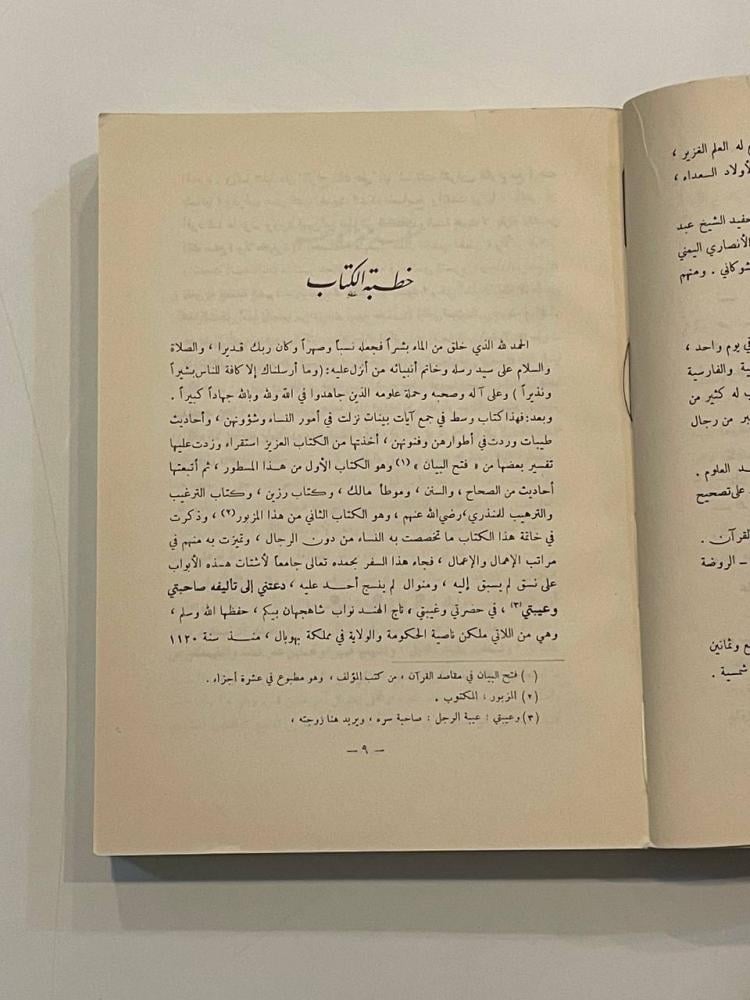 م له العلم الغزير ،
لأولاد السعداء ،
حفيد الشيخ عبد
الأنصاري اليمني
شوكاني . ومنهم
في يوم واحد ،
ية والفارسية
ب له كثير من
ير من رجال
ـد العلوم .
على تصحيح
لقرآن .
ـ الروضة
ع وثمانين
شمسية .
خطبة الكتاب
الحمد لله الذي خلق من الماء بشراً فجعله نسباً وصهراً وكان ربك قديرا ، والصلاة
والسلام على سيد رسله وخاتم أنبيائه من أنزل عليه : (وما أرسلناك إلا كافة للناس بشيراً
ونذيراً ) وعلى آله وصحبه وحملة علومه الذين جاهدوا في الله ولله وبالله جهاداً كبيراً .
وبعد : فهذا كتاب وسط في جمع آيات بينات نزلت في أمور النساء وشؤونهن ، وأحاديث
طيبات وردت في أطوارهن وفنونهن ، أخذتها من الكتاب العزيز استقراء وزدت عليها
تفسير بعضها من « فتح البيان » (١) وهو الكتاب الأول من هذا المسطور ، ثم أتبعتها
أحاديث من الصحاح ، والسنن ، وموطأ مالك ، وكتاب رزين ، وكتاب الترغيب
والترهيب للمنذري ، رضي الله عنهم ، وهو الكتاب الثاني من هذا المزبور (٢) ، وذكرت
في خاتمة هذا الكتاب ما تخصصت به النساء من دون الرجال ، وتميزت به منهم في
مراتب الإهمال والإعمال ، فجاء هذا السفر بحمده تعالى جامعاً لأشتات هذه الأبواب
على نسق لم يسبق إليه ، ومنوال لم ينسج أحد عليه ، دعتني إلى تأليفه صاحبتي
وعيبتي (٣) ، في حضرتي وغيبتي ، تاج الهند نواب شاهجهان بيكم ، حفظها الله وسلم ،
وهي من اللاتي ملكن ناصية الحكومة والولاية في مملكة بهوبال ، منذ سنة ١١٢٠
(١) فتح البيان في مقاصد القرآن ، من كتب المؤلف ، وهو مطبوع في عشرة أجزاء .
(٢) المزبور : المكتوب .
(٣) وعيبتي : عيبة الرجل : صاحبة سره ، ويريد هنا زوجته ،
– ٩ –